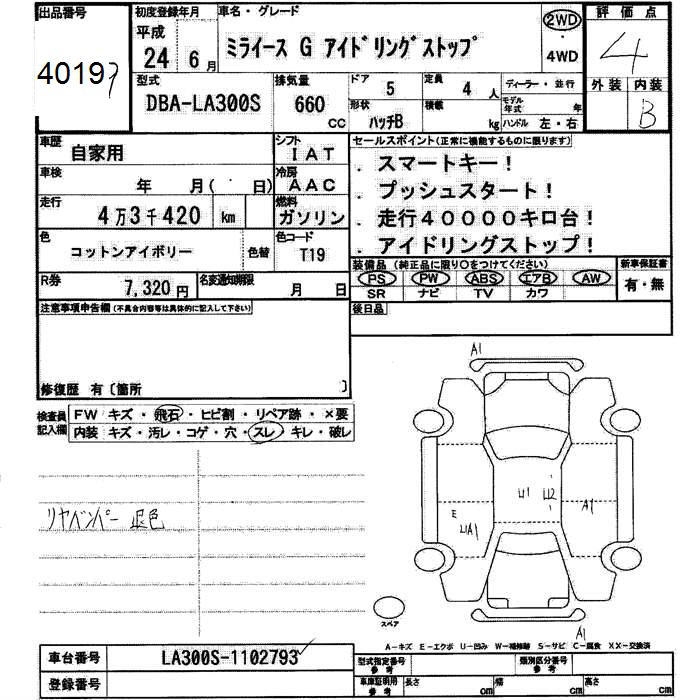 出品番号
40197
初度登録年月
平成
24年 6月
車名・グレード
ミライース G アイドリングストップ
2WD
・
4WD
評価点
4
外装 内装
B
型式
DBA-LA300S
排気量
660
CC
ドア
5
定員
4人
形状
ハッチB
積載
kg
ディーラー・並行
モデル年式 年
ハンドル 左・右
車歴
自家用
シフト
IAT
車検
年 月( ・ 日)
冷房
AAC
走行
4万3千420 km
燃料
ガソリン
色
コットンアイボリー
色替
色コード
T19
R券
7,320円
名変通知期限
月 日
セールスポイント(正常に機能するものに限ります)
. スマートキー!
. プッシュスタート!
. 走行40000キロ台!
. アイドリングストップ!
装備品(純正品に限り○をつけてください)
PS PW ABS エアB AW
SR ナビ TV カワ
新車保証書
有・無
後日品
注意事項申告欄(不具合内容等は具体的に記入して下さい)
修復歴 有〔箇所 〕
検査員
記入欄
FW キズ・飛石・ヒビ割・リペア跡・×要
内装 キズ・汚レ・コゲ・穴・スレ・キレ・破レ
リヤバンパー 退色
A1
U1
U2
A1
E
UA1
A1
スペア
A-キズ E-エクボ U-凹み W-補修跡 S-サビ C-腐食 XX-交換済
車台番号
LA300S-1102793
登録番号
型式指定番号
参考
類別区分番号
参考
車庫証明用
参考
長さ cm
幅 cm
高さ cm